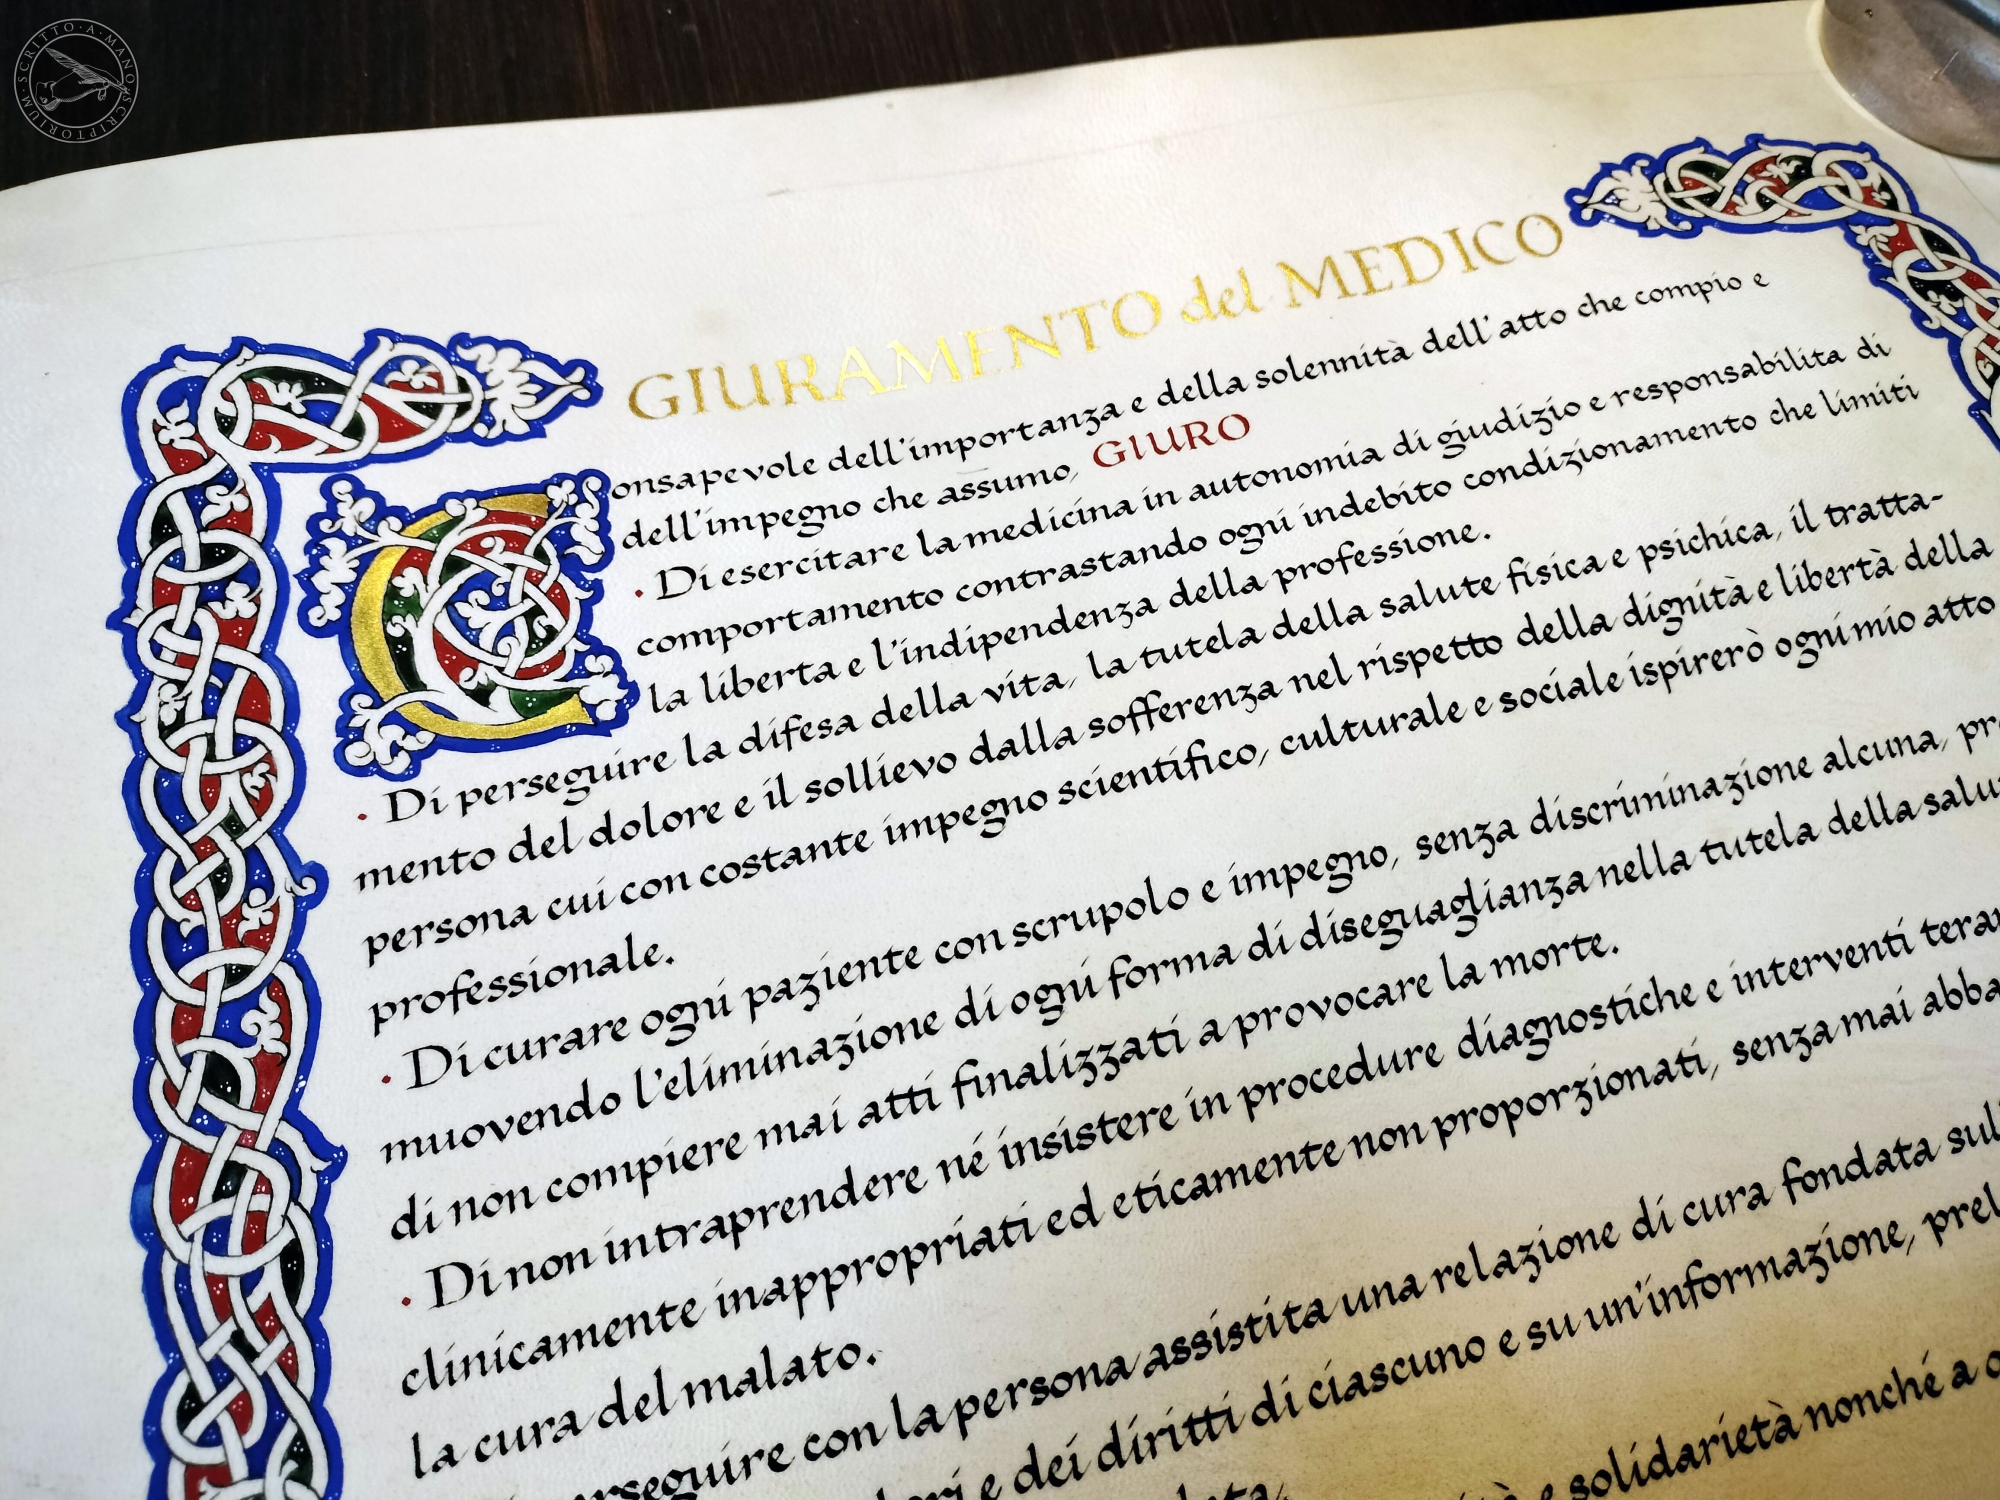 SCRITTO · A · MANO · SCRIPTORIUM
GIURAMENTO del MEDICO
Consapevole dell'importanza e della solennità dell'atto che compio e
dell'impegno che assumo, GIURO
· Di esercitare la medicina in autonomia di giudizio e responsabilita di
comportamento contrastando ogni indebito condizionamento che limiti
la liberta e l'indipendenza della professione.
· Di perseguire la difesa della vita, la tutela della salute fisica e psichica, il tratta-
mento del dolore e il sollievo dalla sofferenza nel rispetto della dignità e libertà della
persona cui con costante impegno scientifico, culturale e sociale ispirerò ogni mio atto
professionale.
· Di curare ogni paziente con scrupolo e impegno, senza discriminazione alcuna, pr
muovendo l'eliminazione di ogni forma di diseguaglianza nella tutela della salu
di non compiere mai atti finalizzati a provocare la morte.
· Di non intraprendere né insistere in procedure diagnostiche e interventi tera
clinicamente inappropriati ed eticamente non proporzionati, senza mai abba
la cura del malato.
erseguire con la persona assistita una relazione di cura fondata sul
ori e dei diritti di ciascuno e su un'informazione, prel
e solidarietà nonché a